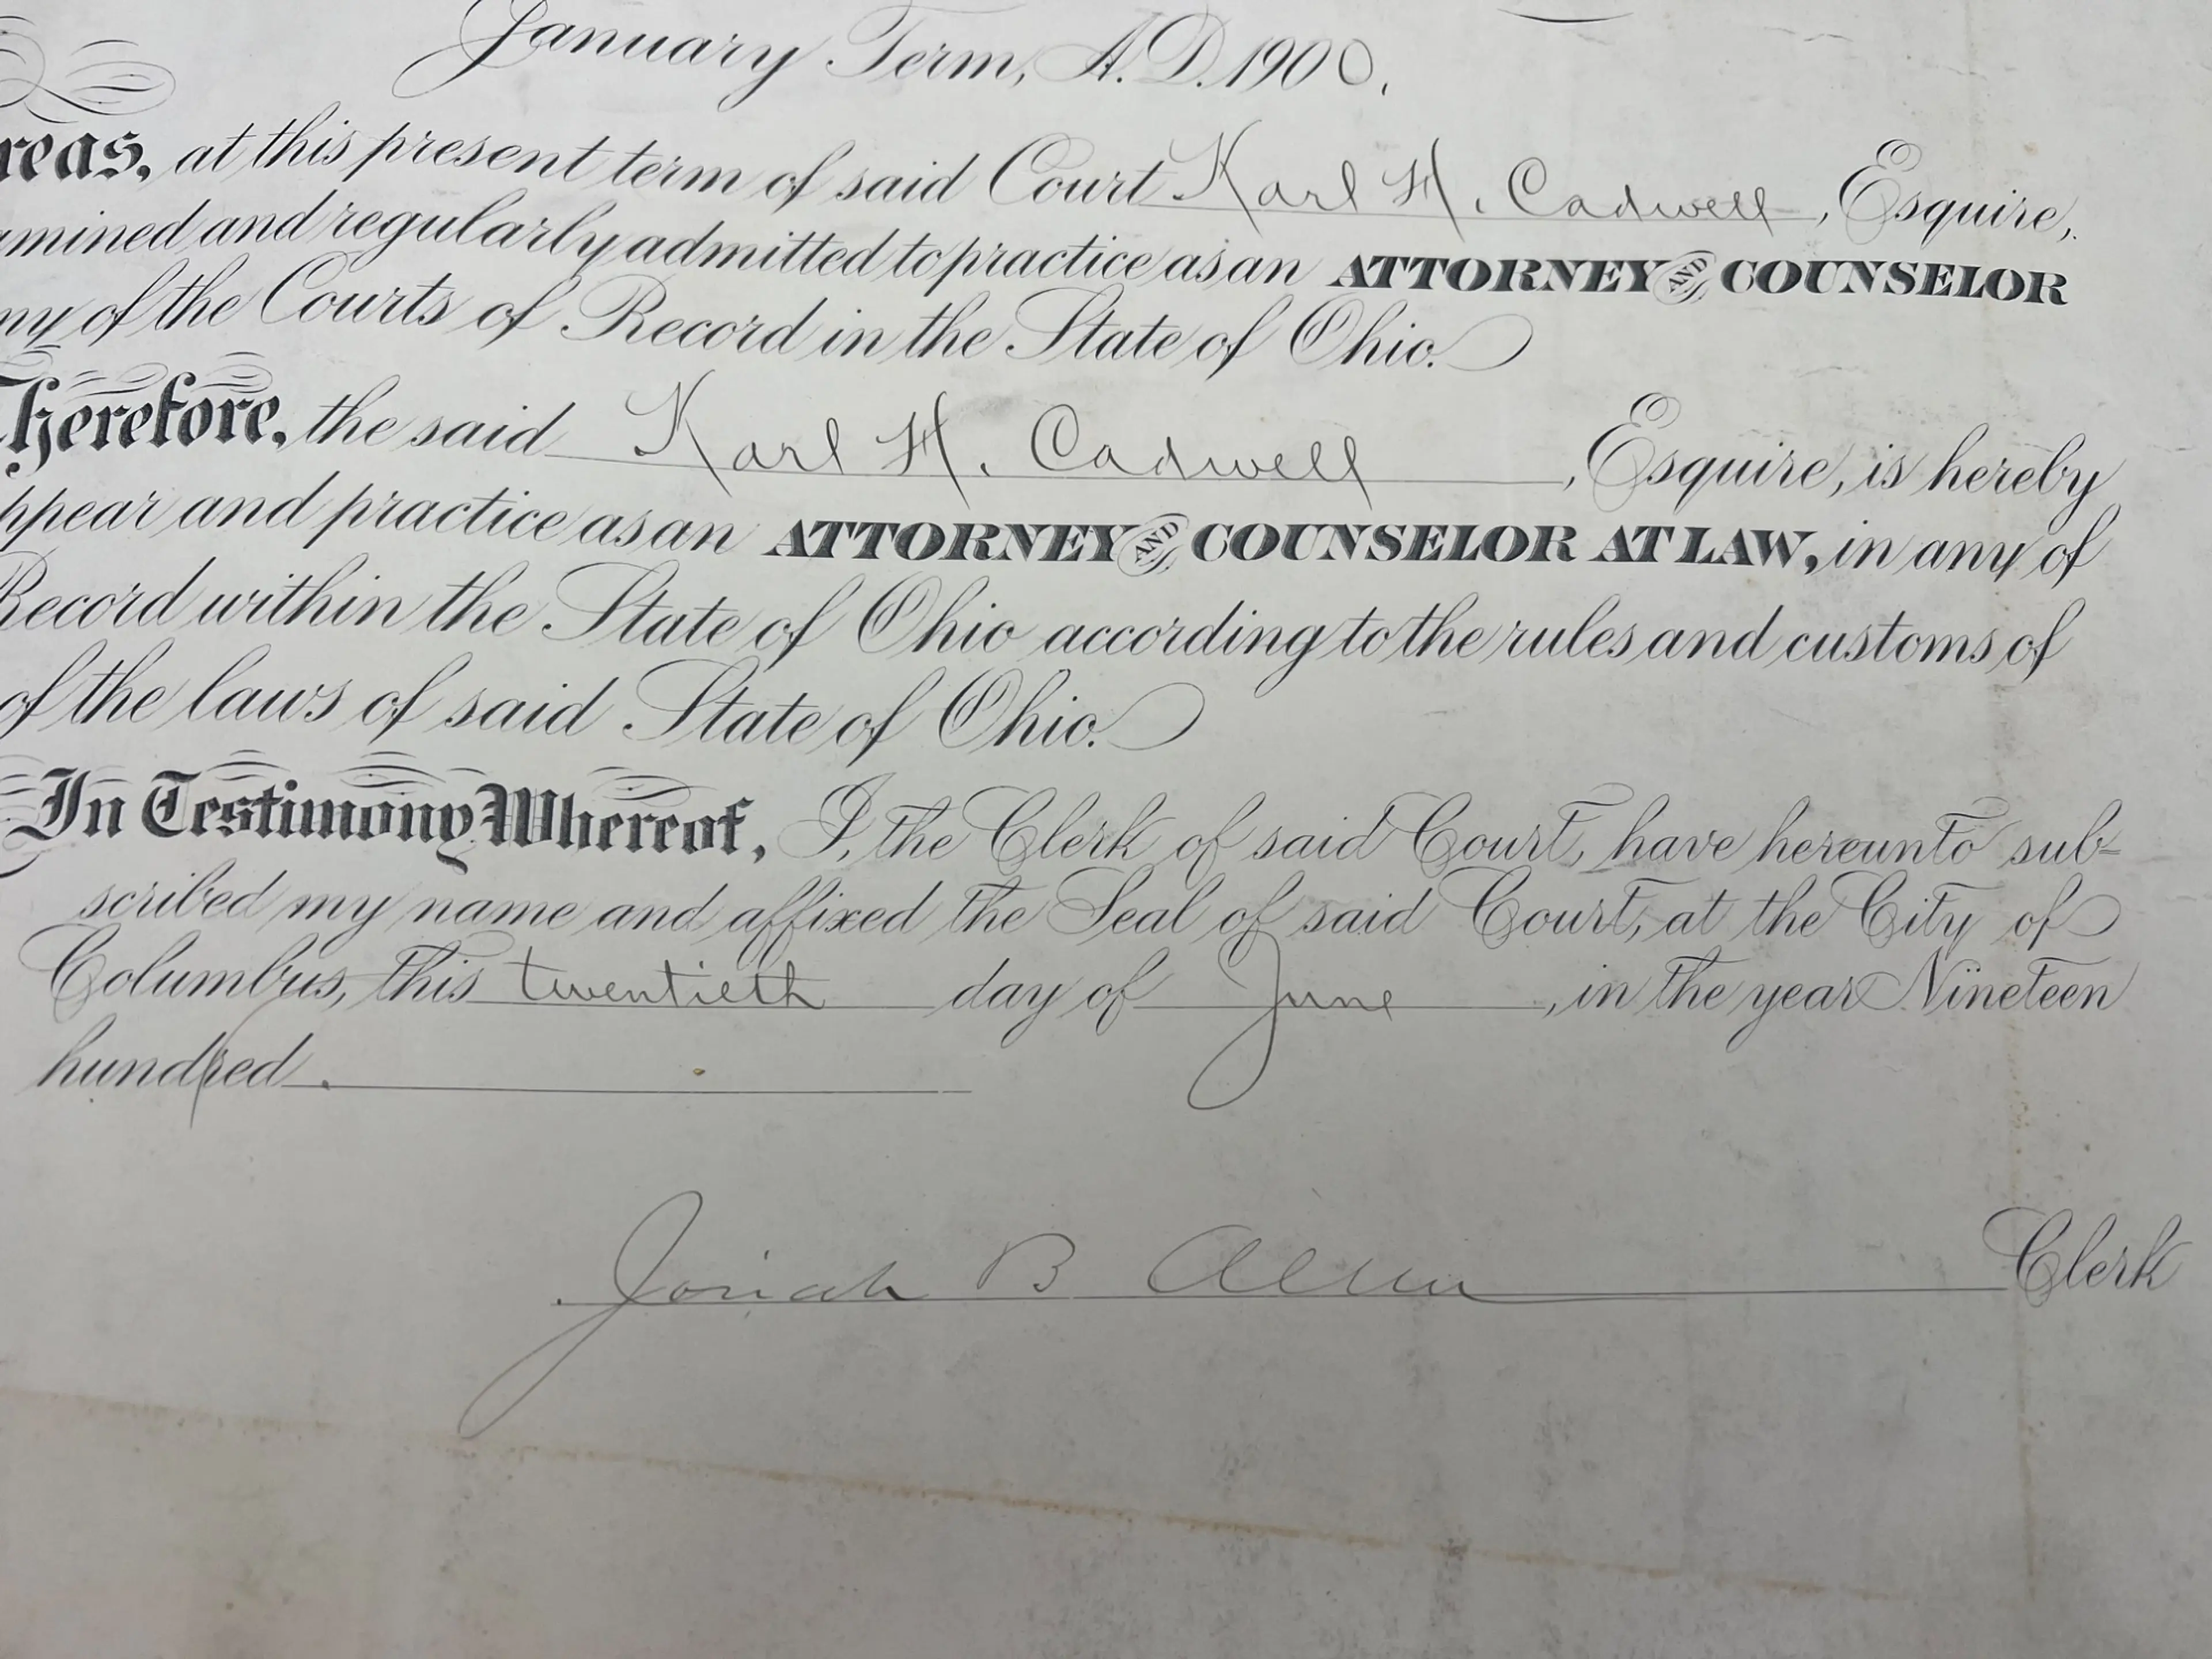 January Term, A.D. 1900.
reas, at this present term of said Court Karl H. Cadwell, Esquire,
amined and regularly admitted to practice as an ATTORNEY AND COUNSELOR
ny of the Courts of Record in the State of Ohio.
Therefore, the said Karl H. Cadwell, Esquire, is hereby
ppear and practice as an ATTORNEY AND COUNSELOR AT LAW, in any of
Record within the State of Ohio according to the rules and customs of
of the laws of said State of Ohio.
In Testimony Whereof, I, the Clerk of said Court, have hereunto sub-
scribed my name and affixed the Seal of said Court, at the City of
Columbus, this twentieth day of June, in the year Nineteen
hundred.
Josiah B Allen Clerk